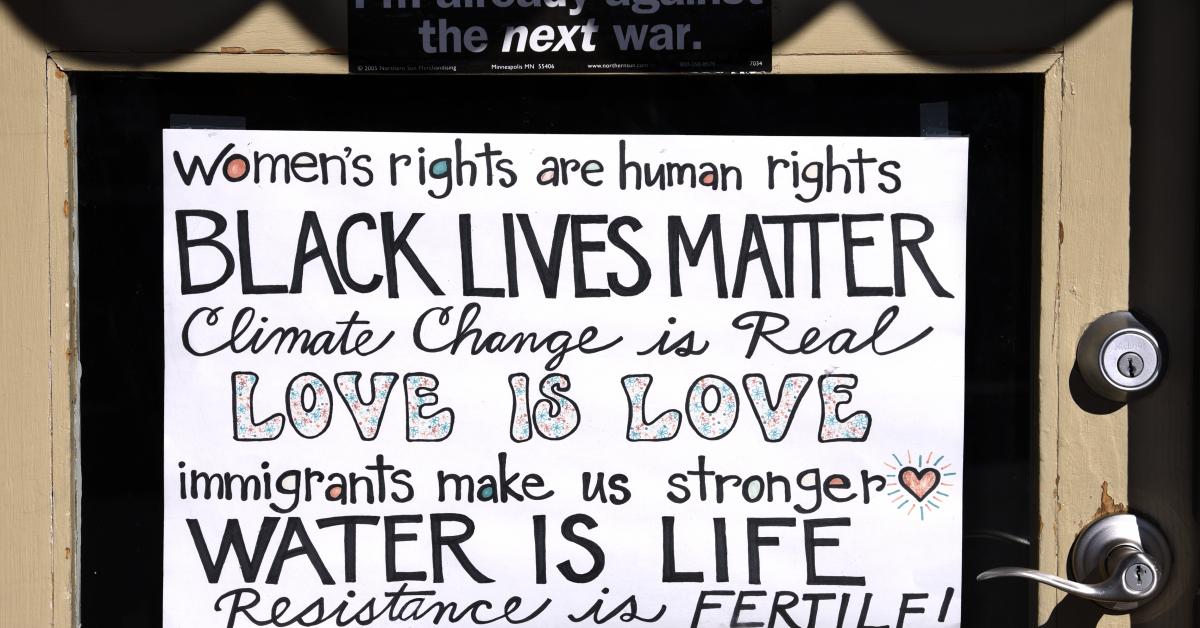 I'm already against
the next war.
© 2005 Northern Sun Merchandising Minneapolis MN 55406 www.northernsun.com 7034
women's rights are human rights
BLACK LIVES MATTER
Climate Change is Real
LOVE IS LOVE
immigrants make us stronger
WATER IS LIFE
Resistance is FERTILE!